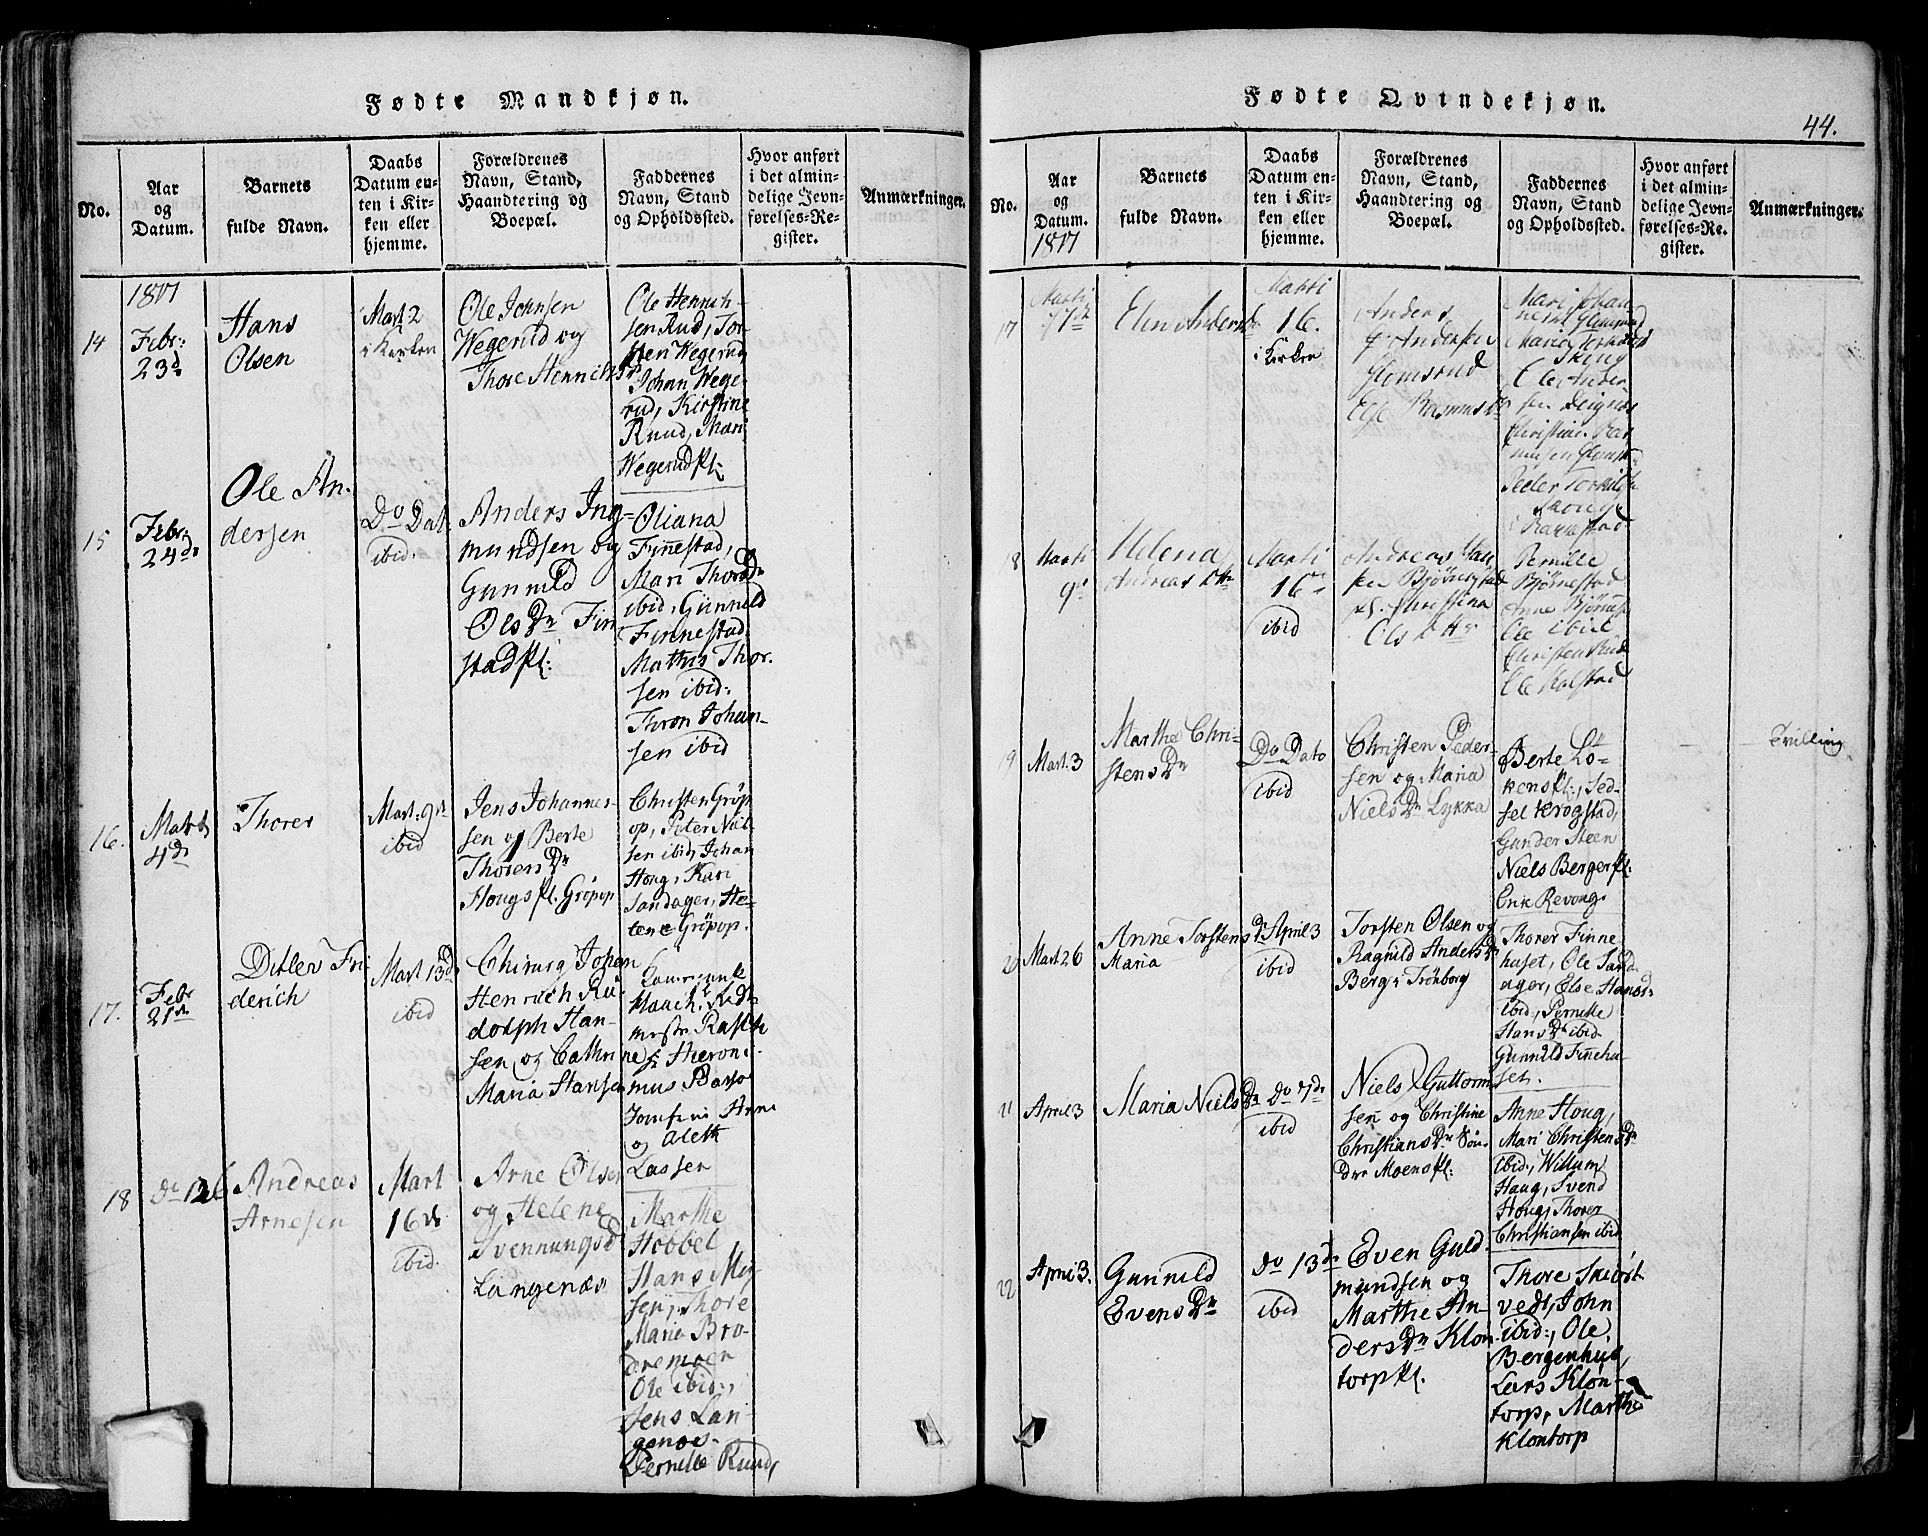 Fødte Mandkjøn.
No.
Aar
og
Datum.
Barnets
fulde Navn.
Daabs
Datum en-
ten i Kir-
ken eller
hjemme.
Forældrenes
Navn, Stand,
Haandtering og
Boepæl.
Faddernes
Navn, Stand
og Opholdssted.
Hvor anført
i det almin-
delige Jevn-
førelses-Re-
gister.
Anmærkninger.
1817
14
Febr:
23d
Hans
Olsen
Mart 2
i Kirken
Ole Johnsen
Wegerud og
Thore Henrichsdr
Ole Henrich-
sen Rud, Tor-
sten Wegerud
Johan Wege-
rud, Kirstine
Ruud, Mari
Wegerud Pl:
15
Febr
24d
Ole An-
dersen
Do Dat
ibid.
Anders Ing-
mundsen og
Gunnild
Ols Dr Fin
stad Pl:
Oliana
Finnestad,
Mari Thors Dr
ibid, Gunnild
Finnestad
Mathis Thor-
sen ibid:
Thron Johan-
sen ibid
16.
Mart
4d
Thorer
Mart: 9d
ibid
Jens Johannes-
sen og Berte
Thorers Dr
Hougs Pl. Gröpop
Christen Gröp
op, Peter Niel-
sen ibid, Johan
Houg, Kari
Sandager, He-
lene Gröpop.
17.
Febr
21d
Ditlev Fri
derich
Mart 13d
ibid
Chirurg Johan
Henrich Ru-
dolph Han-
sen og Cathrine
Maria Hansen
Maach,
Hieroni-
mus
Jomfrui Arne
og Aleth
Lassen
18
do 126
Andreas
Arnesen
Mart
16d
ibid.
Arne Olsen
og Helene
Svennungsd
Langenæs
Marthe
Hobbel
Hans My
sen, Thore
Maria Bro-
dremoen
Ole ibid:,
Jens Lan-
genæs
Pernille Ruud,
Fødte Qvindekjøn.
44.
No.
Aar
og
Datum.
1817
Barnets
fulde Navn.
Daabs
Datum en-
ten i Kir-
ken eller
hjemme.
Forældrenes
Navn, Stand,
Haandtering og
Boepæl.
Faddernes
Navn, Stand
og Opholdssted.
Hvor anført
i det almin-
delige Jevn-
førelses-Re-
gister.
Anmærkninger.
17
Marti
7d
Elen Andersd
Marti
16.
i Kirken
Anders
Andersen
Glomsrud
Else Rasmusdr
Mari Johan
Ole Ander-
sen
Christine Ras
musen
Peder Torkild
8
Marti
9d
Helena
Andreas Dtr
Marti
16
ibid
Andreas Han
sen Bjørnestad
Christina
Ols Dtr
Pernille
Bjørnestad
Anne Bjørnest
Ole ibid
Christen Rud
Ole Kolstad
19
Mart. 3
Marthe Chri-
stens Dr
Do Dato
ibid
Christen Peder-
sen og Maria
Niels Dr Lykka
Berte Lö-
kens Pl:, Sed-
sel Krogstad,
Gunder Steen
Niels Berger Pl:
Erik Revoug.
Tvilling
20
Mart 26
Anne Torstens Dr
Maria
April 3
ibid
Torsten Olsen og
Ragnild Anders Dr
Berg i Trönborg
Thorer Finne
huset, Ole Sand
ager, Else Hansdr
ibid, Pernille
Hans Dr ibid
Gunnild Finneha-
sen.
21
April 3
Maria Niels Dr
do 7d
ibid
Niels Guttorm
sen og Christine
Christians Dr Sön-
dre Moens Pl:
Anne Houg,
Mari Christens Dr
ibid, Willum
Haug, Svend
Houg, Thorer
Christiansen ibid
22
April 3.
Gunnild
Evens Dr
do 13d
ibid
Even Guld-
mundsen og
Marthe An-
ders Dr Klon
torp Pl.
Thore Skiöst
vedt, John
ibid:, Ole
Bergenhus,
Lars Klon-
torp, Marthe
Klontorp